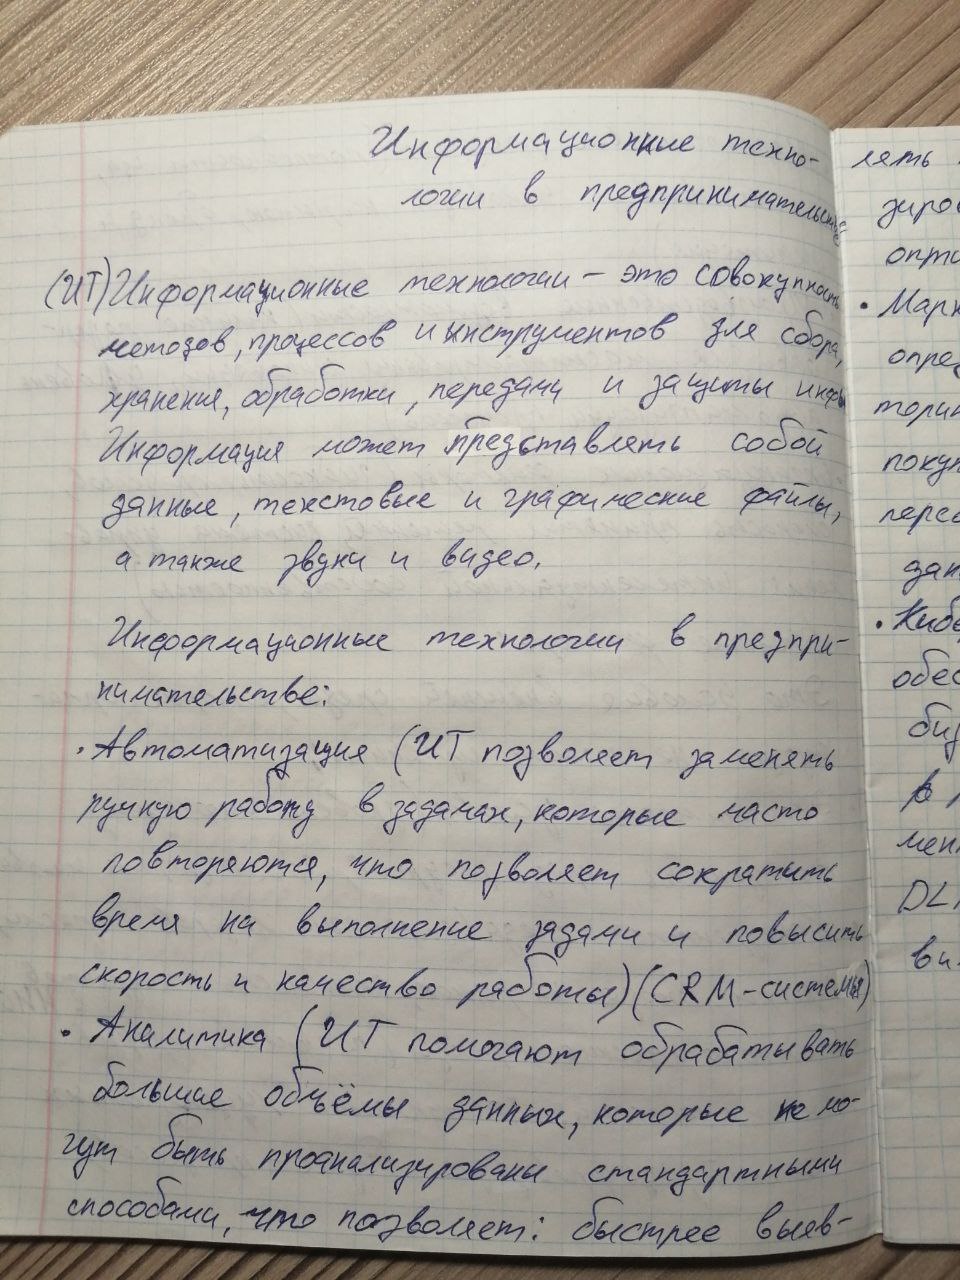 Информационные техно-
логии в предпринимательстве
(ИТ) Информационные технологии – это совокупность
методов, процессов и инструментов для сбора,
хранения, обработки, передачи и защиты инфы
Информация может представлять собой
данные, текстовые и графические файлы,
а также звуки и видео.
Информационные технологии в предпри-
нимательстве:
• Автоматизация (ИТ позволяет заменять
ручную работу в задачах, которые часто
повторяются, что позволяет сократить
время на выполнение задачи и повысить
скорость и качество работы) (CRM-системы)
• Аналитика (ИТ помогают обрабатывать
большие объёмы данных, которые не мо-
гут быть проанализированы стандартными
способами, что позволяет: быстрее выяв-
лять
зиров
опти
• Марк
опред
торин
покуп
персо
дан
• Кибе
обес
биз
в
мен
DL
ви